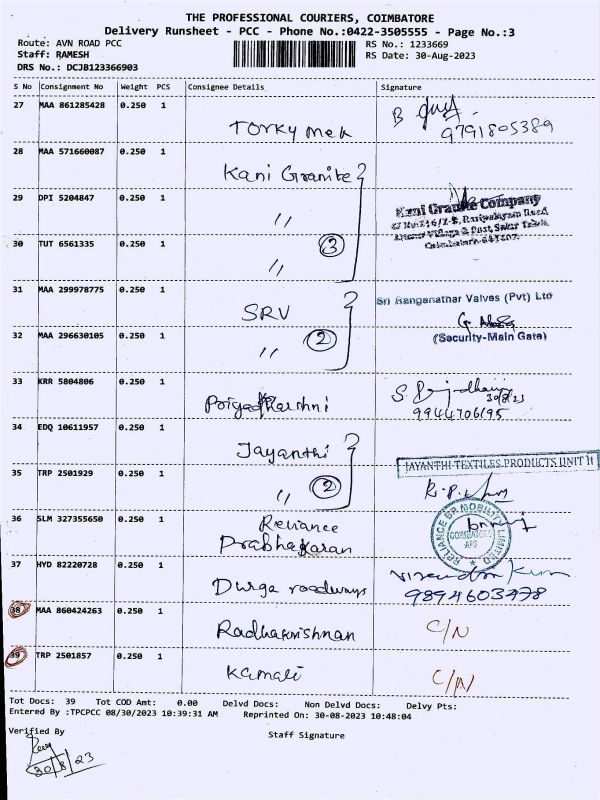 THE PROFESSIONAL COURIERS, COIMBATORE
Delivery Runsheet - PCC - Phone No.:0422-3505555 - Page No.:3
Route: AVN ROAD PCC
RS No.: 1233669
Staff: RAMESH
RS Date: 30-Aug-2023
DRS No.: DCJB123366903
S No Consignment No Weight PCS Consignee Details Signature
27 MAA 861285428 0.250 1 TORKY MEK B
9791805389
28 MAA 571660087 0.250 1 Kani Granite
29 DPI 5204847 0.250 1 "
Kani Granite Company
30 TUT 6561335 0.250 1 " 3
31 MAA 299978775 0.250 1 SRV
Sri Ranganathar Valves (Pvt) Ltd
32 MAA 296630105 0.250 1 " 2
(Security-Main Gate)
33 KRR 5804806 0.250 1 Priyadharshni
30/8/23
9944706195
34 EDQ 10611957 0.250 1 Jayanthi
JAYANTHI TEXTILES PRODUCTS UNIT II
35 TRP 2501929 0.250 1 " 2
36 SLM 327355650 0.250 1 Reliance
Prabhakaran
RELIANCE BP MOBILITY LIMITED
COIMBATORE
37 HYD 82220728 0.250 1 Durga roadways
9894603478
38 MAA 860424263 0.250 1 Radhakrishnan C/N
39 TRP 2501857 0.250 1 Kamali C/N
Tot Docs: 39 Tot COD Amt: 0.00 Delvd Docs: Non Delvd Docs: Delvy Pts:
Entered By :TPCPCC 08/30/2023 10:39:31 AM Reprinted On: 30-08-2023 10:48:04
Verified By
Staff Signature
30/8/23